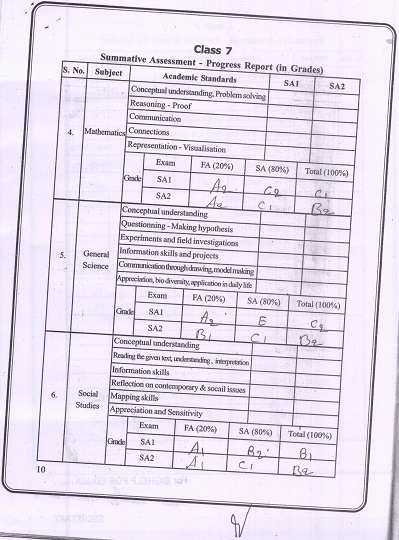 Class 7
Summative Assessment - Progress Report (in Grades)
S. No. Subject Academic Standards SA1 SA2
Conceptual understanding, Problem solving
Reasoning - Proof
Communication
4. Mathematics Connections
Representation - Visualisation
Exam FA (20%) SA (80%) Total (100%)
Grade SA1 A2 C2 C1
SA2 A2 C1 B2
Conceptual understanding
Questionning - Making hypothesis
5. General Science Experiments and field investigations
Information skills and projects
Communication through drawing, model making
Appreciation, bio diversity, application in daily life
Exam FA (20%) SA (80%) Total (100%)
Grade SA1 A2 E C2
SA2 B1 C1 B2
Conceptual understanding
Reading the given text, understanding, interpretation
Information skills
Reflection on contemporary & socail issues
6. Social Studies Mapping skills
Appreciation and Sensitivity
Exam FA (20%) SA (80%) Total (100%)
Grade SA1 A1 B2 B1
SA2 A1 C1 B2
10